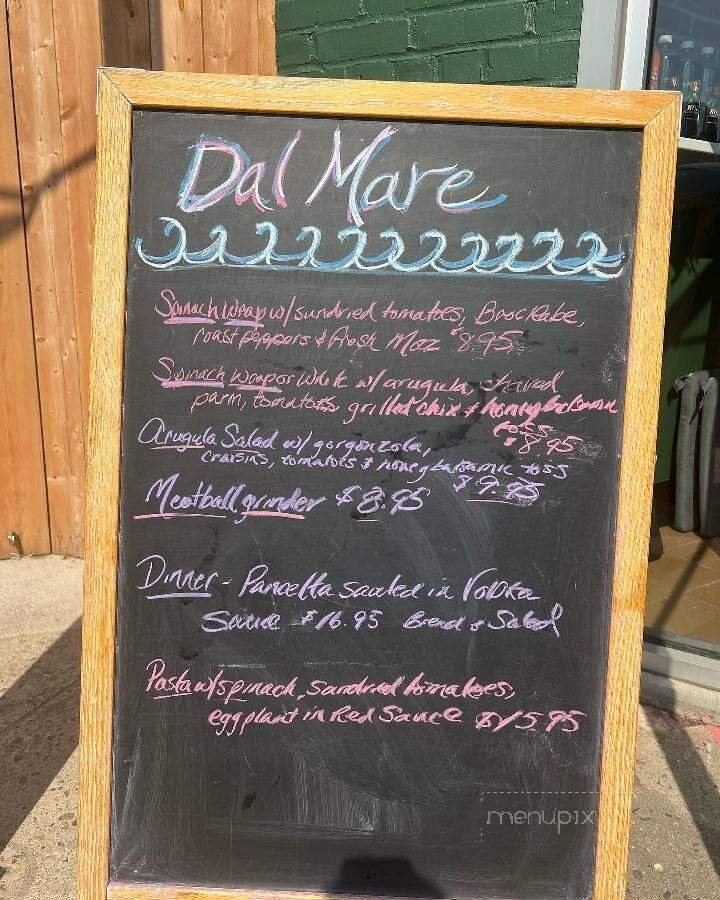 Dal Mare
Spinach Wrap w/ sundried tomatoes, Broc Rabe,
roast peppers & fresh Moz $8.95
Spinach wrap or White w/ arugula, shaved
parm, tomatoes grilled chix & honey balsamic
toss
$8.95
Arugula Salad w/ gorgonzola,
craisins, tomatoes & honey balsamic toss
$9.95
Meatball grinder $8.95
Dinner - Pancetta sauted in Vodka
Sauce $16.95 Bread & Salad
Pasta w/ spinach, sundried tomatoes,
eggplant in Red Sauce $15.95
menupix